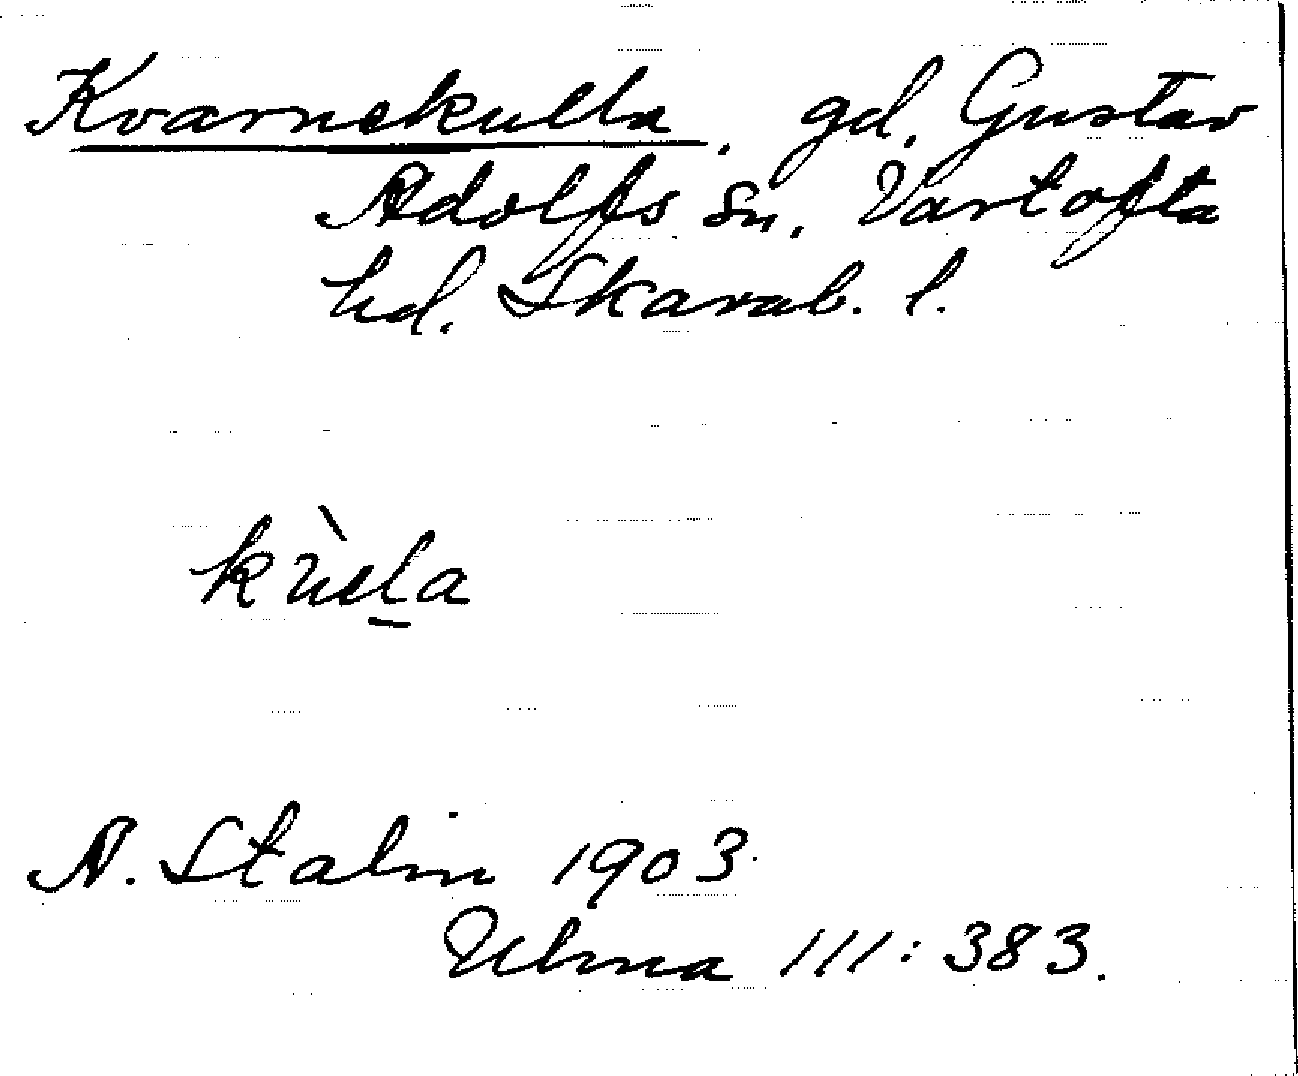 Kvarnekulla, gd, Gustav
Adolfs sn, Vartofta
hd. Skarab. l.
kùla
A. Stalin 1903
Ulma 111:383.